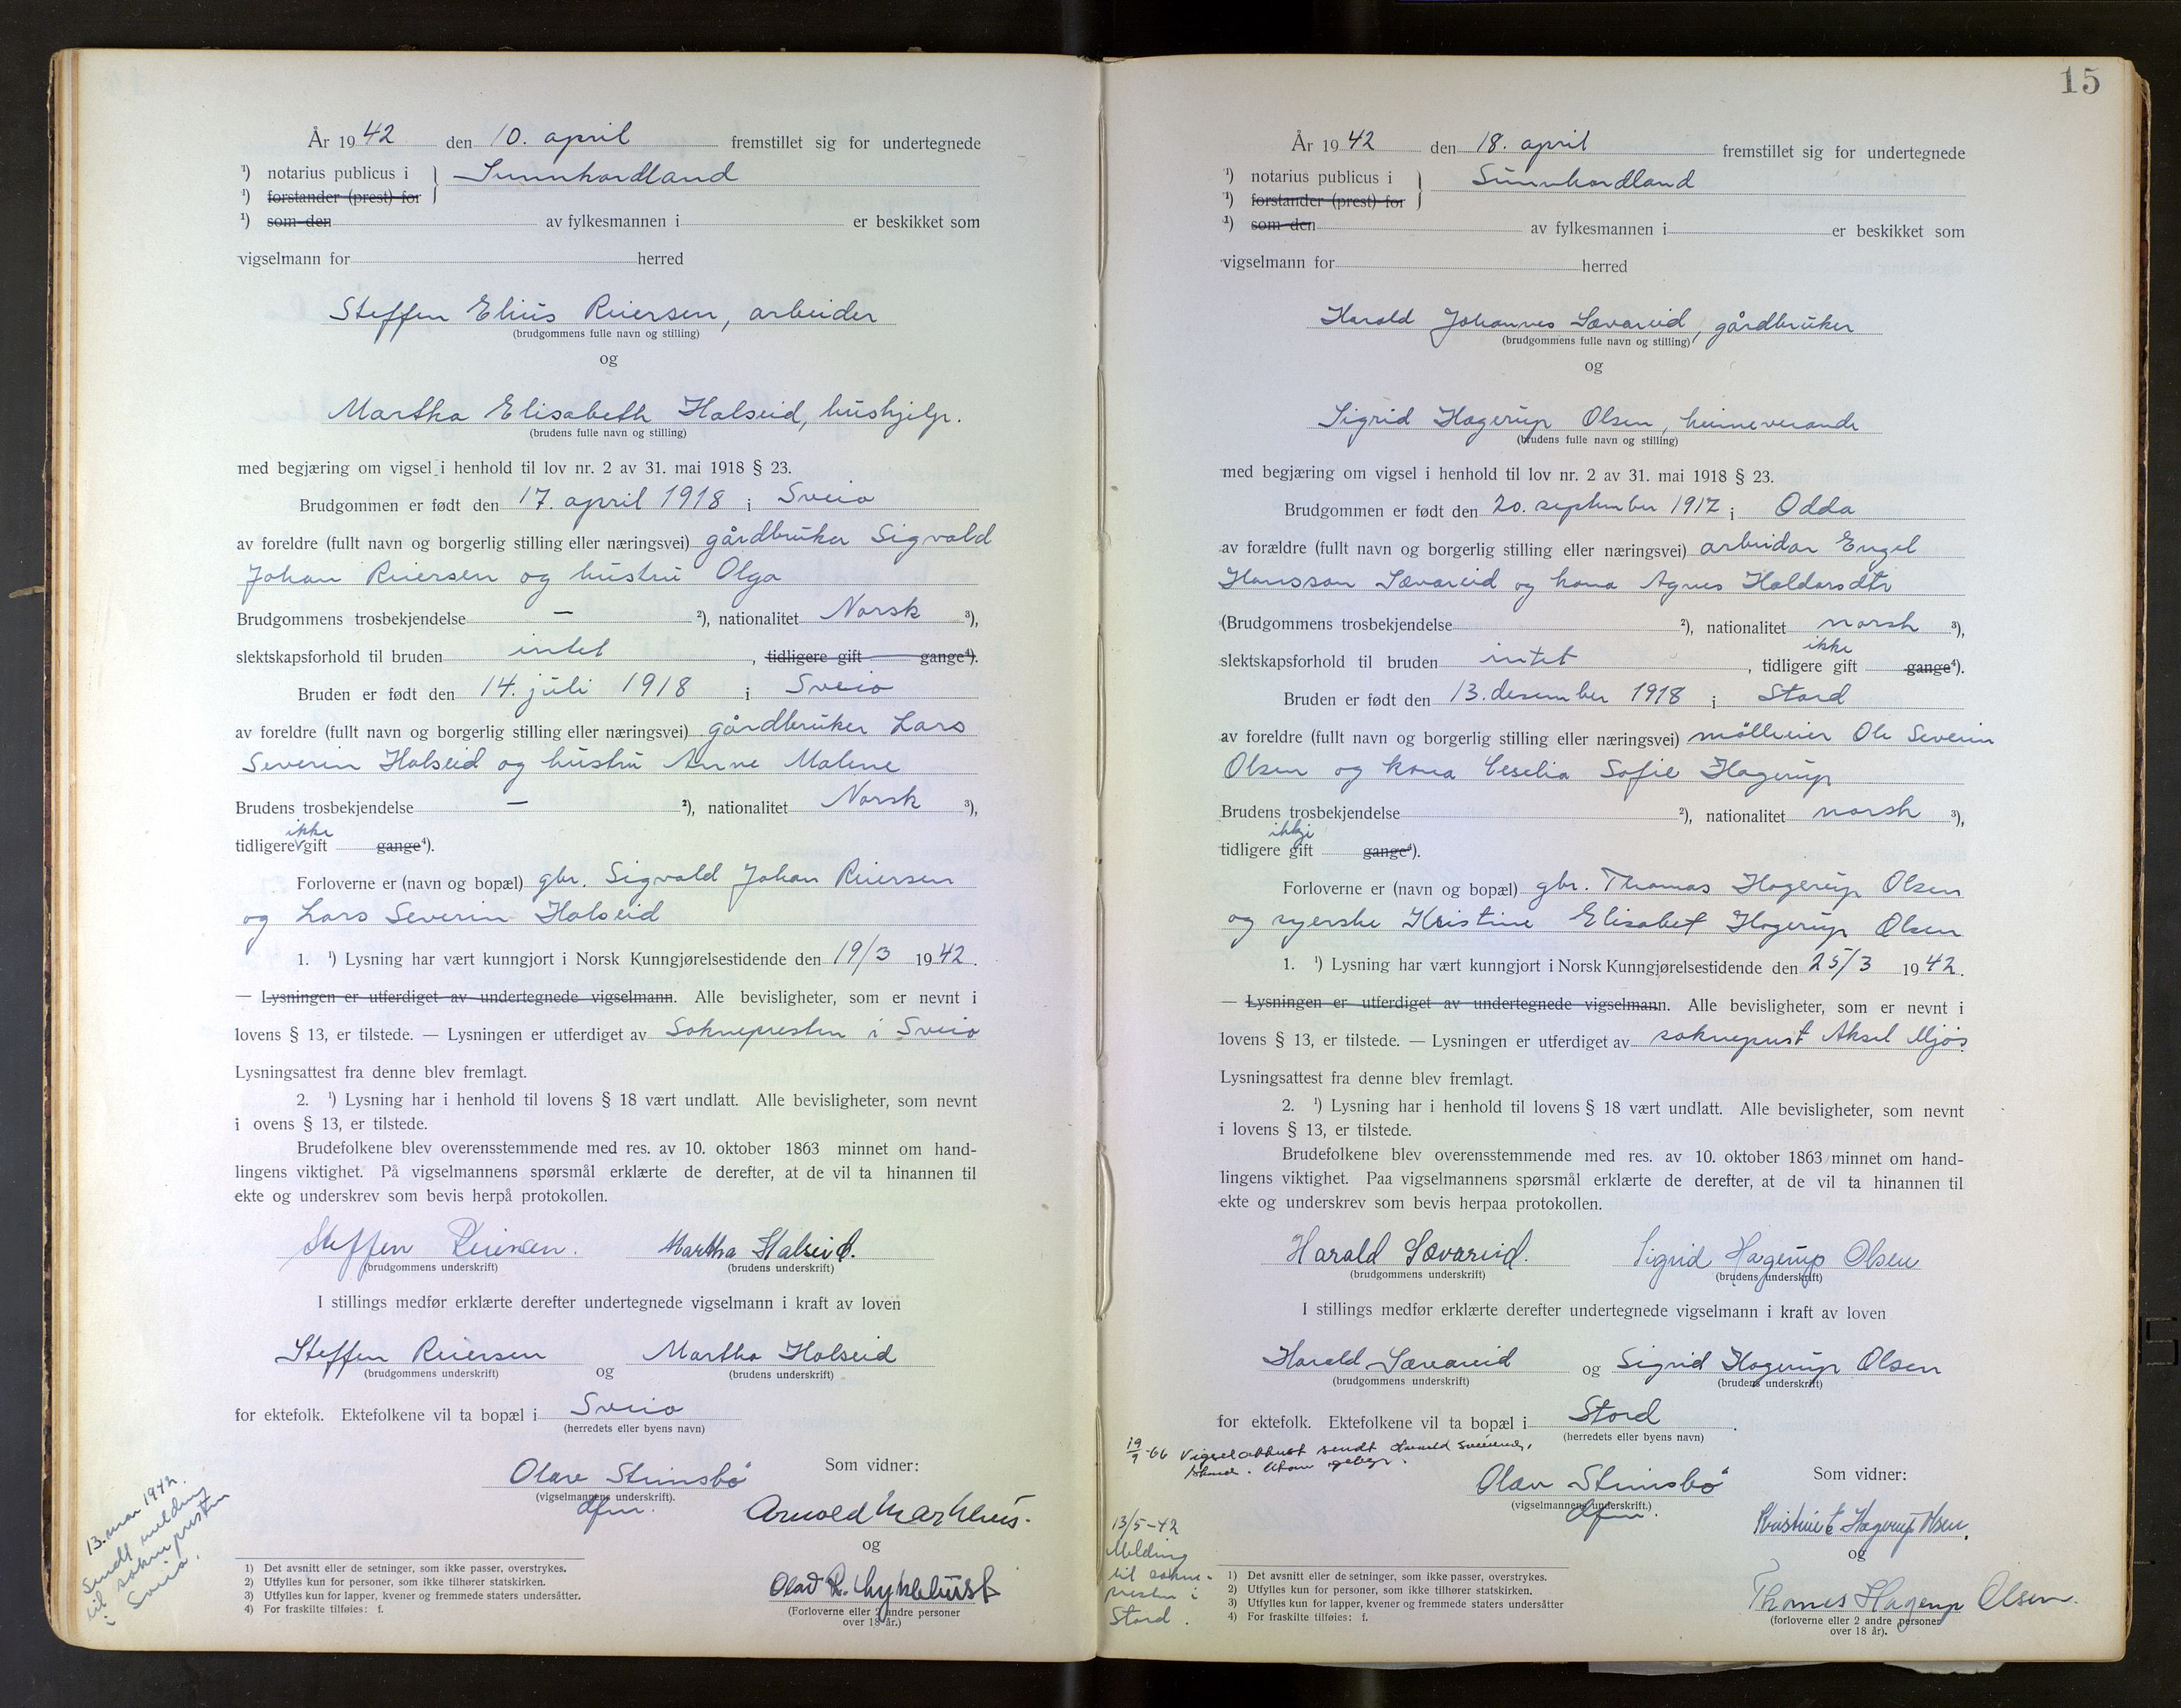 År 1942 den 10. april fremstillet sig for undertegnede
¹) notarius publicus i } Sunnhordland
¹) forstander (prest) for
¹) som den av fylkesmannen i er beskikket som
vigselmann for herred
Steffen Elius Reiersen, arbeider
(brudgommens fulle navn og stilling)
og
Martha Elisabeth Halseid, hushjelp.
(brudens fulle navn og stilling)
med begjæring om vigsel i henhold til lov nr. 2 av 31. mai 1918 § 23.
Brudgommen er født den 17. april 1918 i Sveio
av foreldre (fullt navn og borgerlig stilling eller næringsvei) gårdbruker Sigvald
Johan Reiersen og hustru Olga
Brudgommens trosbekjendelse — ²), nationalitet Norsk ³),
slektskapsforhold til bruden intet , tidligere gift gange⁴).
Bruden er født den 14. juli 1918 i Sveio
av foreldre (fullt navn og borgerlig stilling eller næringsvei) gårdbruker Lars
Severin Halseid og hustru Anne Malene
Brudens trosbekjendelse — ²), nationalitet Norsk ³),
ikke
tidligere gift gange⁴).
Forloverne er (navn og bopæl) gbr. Sigvald Johan Reiersen
og Lars Severin Halseid
1. ¹) Lysning har vært kunngjort i Norsk Kunngjørelsestidende den 19/3 1942.
— Lysningen er utferdiget av undertegnede vigselmann. Alle bevisligheter, som er nevnt i
lovens § 13, er tilstede. — Lysningen er utferdiget av Soknepresten i Sveio
Lysningsattest fra denne blev fremlagt.
2. ¹) Lysning har i henhold til lovens § 18 vært undlatt. Alle bevisligheter, som nevnt
i ovens § 13, er tilstede.
Brudefolkene blev overensstemmende med res. av 10. oktober 1863 minnet om hand-
lingens viktighet. På vigselmannens spørsmål erklærte de derefter, at de vil ta hinannen til
ekte og underskrev som bevis herpå protokollen.
Steffen Reiersen. Martha Halseid.
(brudgommens underskrift) (brudens underskrift)
I stillings medfør erklærte derefter undertegnede vigselmann i kraft av loven
Steffen Reiersen og Martha Halseid
(brudgommens underskrift) (brudens underskrift)
for ektefolk. Ektefolkene vil ta bopæl i Sveio
(herredets eller byens navn)
Som vidner:
Olav Steinsbø
(vigselmannens underskrift).
dfm.
Arnold Markhus.
og
Olav R. Lykkebust
(Forloverne eller 2 andre personer
over 18 år.)
13. mai 1942.
Sendt melding
til soknepresten
i Sveio.
1) Det avsnitt eller de setninger, som ikke passer, overstrykes.
2) Utfylles kun for personer, som ikke tilhører statskirken.
3) Utfylles kun for lapper, kvener og fremmede staters undersåtter.
4) For fraskilte tilføies: f.
15
År 1942 den 18. april fremstillet sig for undertegnede
¹) notarius publicus i } Sunnhordland
¹) forstander (prest) for
¹) som den av fylkesmannen i er beskikket som
vigselmann for herred
Harald Johannes Sævareid, gårdbruker
(brudgommens fulle navn og stilling)
og
Sigrid Hagerup Olsen, heimeverande
(brudens fulle navn og stilling)
med begjæring om vigsel i henhold til lov nr. 2 av 31. mai 1918 § 23.
Brudgommen er født den 20. september 1917 i Odda
av forældre (fullt navn og borgerlig stilling eller næringsvei) arbeidar Engel
Hansson Sævareid og kona Agnes Haldorsdtr
(Brudgommens trosbekjendelse ²), nationalitet norsk ³),
ikke
slektskapsforhold til bruden intet , tidligere gift gange⁴).
Bruden er født den 13. desember 1918 i Stord
av foreldre (fullt navn og borgerlig stilling eller næringsvei) mølleeier Ole Severin
Olsen og kona Ceselia Sofie Hagerup
Brudens trosbekjendelse ²), nationalitet norsk ³),
ikkje
tidligere gift gange⁴).
Forloverne er (navn og bopæl) gbr. Thomas Hagerup Olsen
og syerske Kristine Elisabet Hagerup Olsen
1. ¹) Lysning har vært kunngjort i Norsk Kunngjørelsestidende den 25/3 1942.
— Lysningen er utferdiget av undertegnede vigselmann. Alle bevisligheter, som er nevnt i
lovens § 13, er tilstede. — Lysningen er utferdiget av sokneprest Aksel Mjøs
Lysningsattest fra denne blev fremlagt.
2. ¹) Lysning har i henhold til lovens § 18 vært undlatt. Alle bevisligheter, som nevnt
i lovens § 13, er tilstede.
Brudefolkene blev overensstemmende med res. av 10. oktober 1863 minnet om hand-
lingens viktighet. Paa vigselmannens spørsmål erklærte de derefter, at de vil ta hinannen til
ekte og underskrev som bevis herpaa protokollen.
Harald Sævareid. Sigrid Hagerup Olsen
(brudgommens underskrift) (brudens underskrift)
I stillings medfør erklærte derefter undertegnede vigselmann i kraft av loven
Harald Sævareid og Sigrid Hagerup Olsen
(brudgommens underskrift) (brudens underskrift)
for ektefolk. Ektefolkene vil ta bopæl i Stord.
(herredets eller byens navn)
19/9-66 Vigselattest sendt Harald Sævareid,
Utan gebyr.
Som vidner:
Olav Steinsbø
(vigselmannens underskrift.)
dfm.
Kristine E Hagerup Olsen.
og
Thomas Hagerup Olsen.
(forloverne eller 2 andre personer
over 18 år).
13/5-42
Melding
til sokne-
presten i
Stord.
1) Det avsnitt eller de setninger, som ikke passer, overstrykes.
2) Utfylles kun for personer, som ikke tilhører statskirken.
3) Utfylles kun for lapper, kvener og fremmede staters undersåtter
4) For fraskilte tilføies: f.